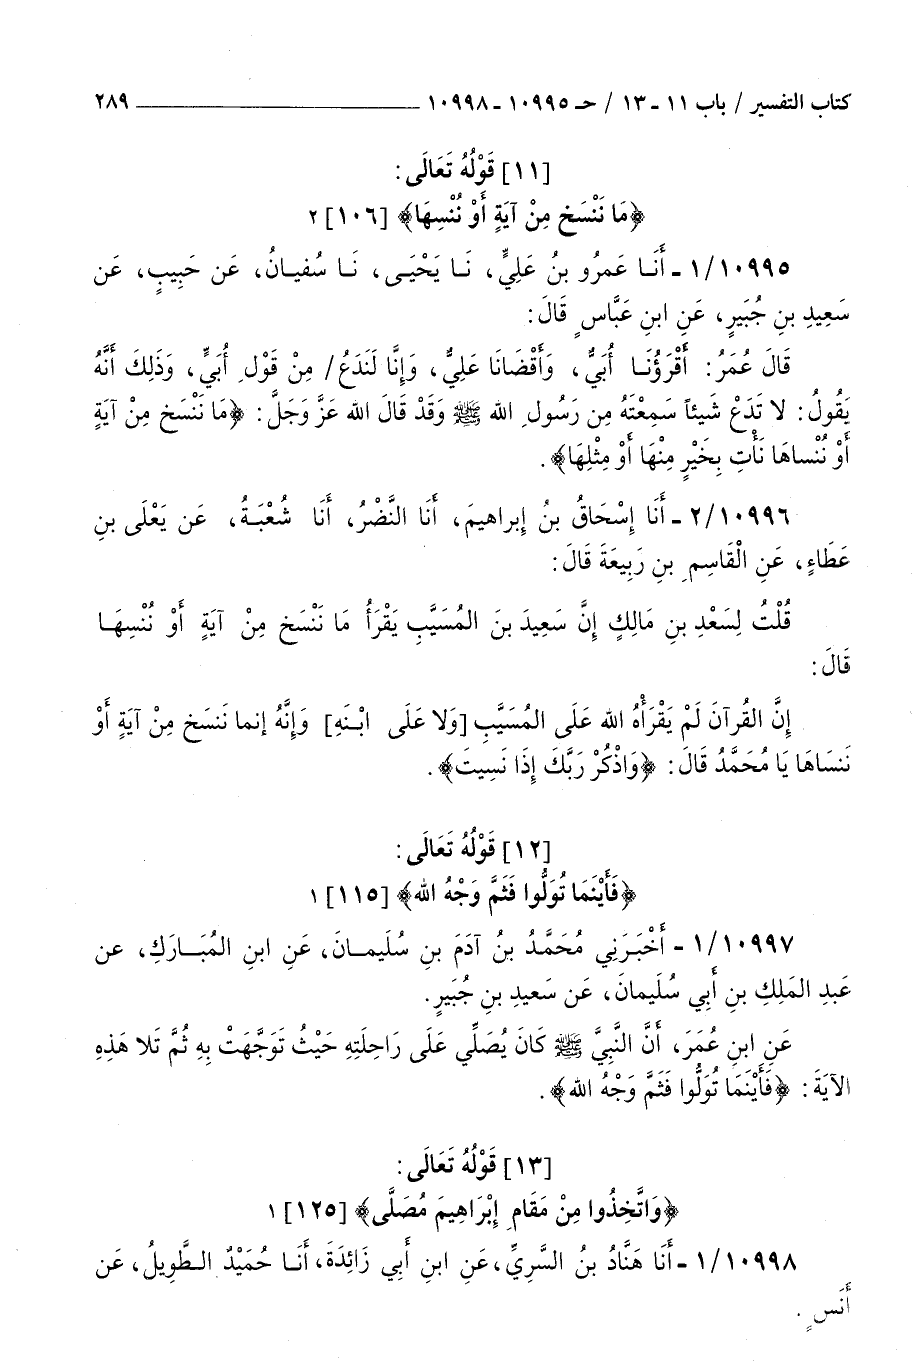 كتاب التفسير / باب ١١ - ١٣ / حـ ١٠٩٩٥ - ١٠٩٩٨ ــــــــــــ ٢٨٩
[١١] قَوْلُهُ تَعَالَى:
﴿مَا نَنْسَخ مِنْ آيَةٍ أَوْ نُنْسِهَا﴾ [١٠٦] ٢
١/١٠٩٩٥ - أَنَا عَمرُو بنُ عَلِيٍّ، نَا يَحْيَى، نَا سُفيانُ، عَن حَبِيبٍ، عَن
سَعِيدِ بنِ جُبَيرٍ، عَنِ ابنِ عَبَّاسٍ قَالَ:
قَالَ عُمَرُ: أَقْرَؤُنَا أُبَيٌّ، وَأَقْضَانَا عَلِيٌّ، وَإِنَّا لَنَدَعُ/ مِنْ قَوْلِ أُبَيٍّ، وَذَلِكَ أَنَّهُ
يَقُولُ: لا تَدَعْ شَيئاً سَمِعْتَهُ مِن رَسُولِ الله ﷺ وَقَدْ قَالَ الله عَزَّ وَجَلَّ: ﴿مَا نَنْسَخ مِنْ آيَةٍ
أَوْ نُنْساهَا نَأْتِ بِخَيْرٍ مِنْهَا أَوْ مِثْلِهَا﴾.
٢/١٠٩٩٦ - أَنَا إِسْحَاقُ بنُ إِبراهيمَ، أَنَا النَّضْرُ، أَنَا شُعْبَةُ، عَن يَعْلَى بنِ
عَطَاءٍ، عَنِ الْقَاسِمِ بنِ رَبِيعَةَ قَالَ:
قُلْتُ لِسَعْدِ بنِ مَالِكٍ إِنَّ سَعِيدَ بنَ المُسَيَّبِ يَقْرَأُ مَا نَنْسَخ مِنْ آيَةٍ أَوْ نُنْسِهَا
قَالَ:
إِنَّ القُرآنَ لَمْ يَقْرَأْهُ الله عَلَى المُسَيَّبِ [وَلا عَلَى ابْنَهِ] وَإِنَّهُ إنما نَنسَخ مِنْ آيَةٍ أَوْ
نَنسَاهَا يَا مُحَمَّدُ قَالَ: ﴿وَاذْكُرْ رَبَّكَ إِذَا نَسِيتَ﴾.
[١٢] قَوْلُهُ تَعَالَى:
﴿فَأَيْنَمَا تُوَلُّوا فَثَمَّ وَجْهُ الله﴾ [١١٥] ١
١/١٠٩٩٧ - أَخْبَرَنِي مُحَمَّدُ بنُ آدَمَ بنِ سُلَيمانَ، عَنِ ابنِ المُبَارَكِ، عن
عَبدِ المَلِكِ بنِ أَبِي سُلَيمانَ، عَن سَعيدِ بنِ جُبَيرٍ.
عَنِ ابنِ عُمَرَ، أَنَّ النَّبِيَّ ﷺ كَانَ يُصَلِّي عَلَى رَاحِلَتِهِ حَيْثُ تَوَجَّهَتْ بِهِ ثُمَّ تَلا هَذِهِ
الآيَةَ: ﴿فَأَيْنَمَا تُوَلُّوا فَثَمَّ وَجْهُ الله﴾.
[١٣] قَوْلُهُ تَعَالَى:
﴿وَاتَّخِذُوا مِنْ مَقَامِ إِبْرَاهِيمَ مُصَلَّى﴾ [١٢٥] ١
١/١٠٩٩٨ - أَنَا هَنَّادُ بنُ السَّرِيِّ، عَنِ ابنِ أَبِي زَائِدَةَ، أَنَا حُمَيْدٌ الطَّوِيلُ، عَن
أَنَسٍ.